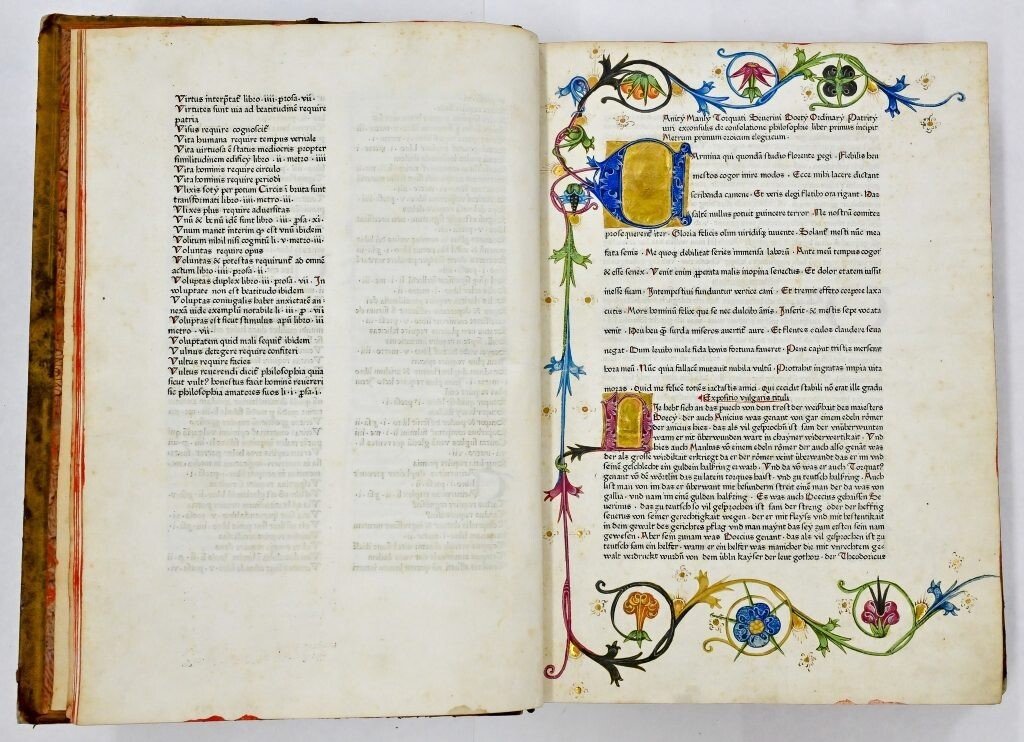 Virtus interptat libro · iiii · prosa · vii ·
Virtutes sunt uia ad beatitudinē require
patria
Visus require cognoscit
Vita humana require tempus vernale
Vita virtuosa ē status mediocris propter
similitudinem edificy libro · ii · metro · iiii
Vita hominis require circulo
Vita hominis require periodi
Vlixis soty per potum Circis ī bruta sunt
transformati libro · iiii · metro · iii ·
Vlixes plus require aduersitas
Vnū & bonū idē sunt libro · iii · prosa · xi ·
Vnum manet interim vnū ibidem
Volitum nihil nisi cognitū li · v · metro · iii ·
Voluntas require opus
Voluntas & potestas requirunt ad omnē
actum libro · iiii · prosa · ii ·
Voluptas duplex libro · iii · prosa · vii · In
voluptate non est beatitudo ibidem
Voluptas coniugalis habet anxietatē an-
nexā uide exempli notabile li · iii · p · vii
Voluptas est sicut stimulus apū libro · iii
metro · vii ·
Voluptatem quid mali sequit ibidem
Vulnus detegere require confiteri
Vultus require facies
Vultus reuerendi dicit philosophia quia
sicut vult honestus facit hominē reuereri
sic philosophia amatores suos li · i · psa · i ·
Anicy Manly Torquati Seuerini Boety Ordinary Patrity
exconsulis de consolatione philosophie liber primus incipit
Metrum primum eroicum elegiacum
Armina qui quondā studio florente pegi · Flebilis heu
mestos cogor inire modos · Ecce mihi lacere dictant
scribenda camene · Et veris elegi fletibus ora rigant · Has
saltē nullus potuit puincere terror · Ne nostrū comites
prosequerent iter · Gloria felicis olim viridisq iuuente · Solant mesti nūc mea
fata senis · Me quoq debilitat series immensa laborū · Ante meū tempus cogor
& esse senex · Venit enim pperata malis inopina senectus · Et dolor etatem iussit
inesse suam · Intempestiui funduntur vertice cani · Et tremit effeto corpore laxa
cutis · Mors hominū felix que se nec dulcibus ānis · Inserit · & mestis sepe vocata
venit · Heu heu q surda miseros auertit aure · Et flentes oculos claudere seua
negat · Dum leuibus male fida bonis fortuna faueret · Pene caput tristis merserat
hora meū · Nūc quia fallacē mutauit nubila vultū · Protrahit ingratas impia vita
moras · Quid me felicē totiēs iactastis amici · Qui cecidit stabili nō erat ille gradu
Expositio vulgaris tituli
Hie hebt sich an das puech von dem trost der weißhait des maisters
Boecy · der auch Anicius was genant von gar einem edeln römer
der anicius hies · das als vil gesprochen ist sam der vnüberwunten
wann er mit überwunden wart in chayner widerwertikait · Vnd
hies auch Manlius vō einem edeln römer der auch also genāt was
der als grosse wirdikait erkriegt da er der römer veint überwandt das er im vnd
seinē geschlecht ein guldein halsring erwarb · Vnd da vō was er auch Torquatus
genant vō dē wörtlin das zu latein torques haist · vnd zu teutsch halsring · Auch
list man von im das er überwant mit besunderm streit einē man der da was von
gillia · vnd nam im einē gulden halsring · Es was auch Boecius gehaissen Se
uerinus · das zu teutsch so vil gesprochen ist sam der streng oder der hefftig
seuerus von seiner gerechtigkait wegen · der er mit fleyss vnd mit bestentikait
in dem gewalt des gerichtes pflag vnd man maynt das sey zum ersten sein nam
gewesen · Aber sein zunam was Boecius genant · das als vil gesprochen ist zu
teutsch sam ein helfer · wann er ein helfer was manicher die mit vnrechtem ge-
walt verdruckt wurdē von dem übln kayser der leut gothor · der Theodoricus